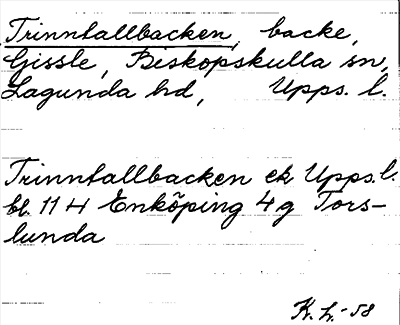 Trinntallbacken, backe,
Gissle, Biskopskulla sn,
Lagunda hd, Upps. l.
Trinntallbacken ek Upps.l.
bl. 11 H Enköping 4 g Tors-
lunda
K. L. -58